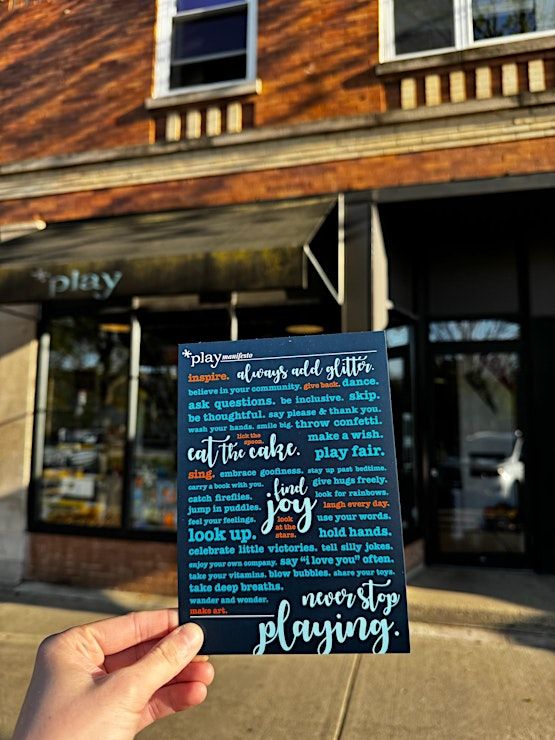 *play
*play manifesto
inspire. always add glitter.
believe in your community. give back. dance.
ask questions. be inclusive. skip.
be thoughtful. say please & thank you.
wash your hands. smile big. throw confetti.
eat the cake. lick the spoon. make a wish.
play fair.
sing. embrace goofiness. stay up past bedtime.
carry a book with you. find joy give hugs freely.
catch fireflies. look for rainbows.
jump in puddles. laugh every day.
feel your feelings. look at the stars. use your words.
look up. hold hands.
celebrate little victories. tell silly jokes.
enjoy your own company. say "i love you" often.
take your vitamins. blow bubbles. share your toys.
take deep breaths.
wander and wonder.
make art.
never stop
playing.